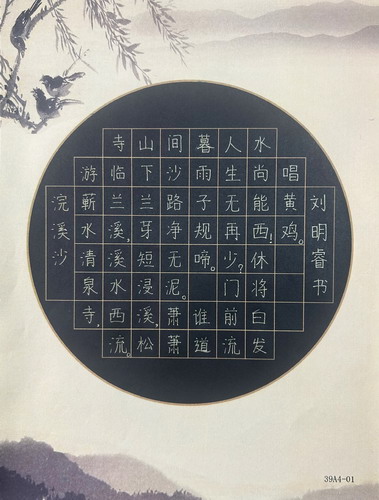 浣溪沙
游蕲水清泉寺,
寺临兰溪,溪水西流。
山下兰牙短浸溪,松
间沙路净无泥。萧萧
暮雨子规啼。谁道
人生无再少?门前流
水尚能西!休将白发
唱黄鸡。
刘明睿书
39A4-01